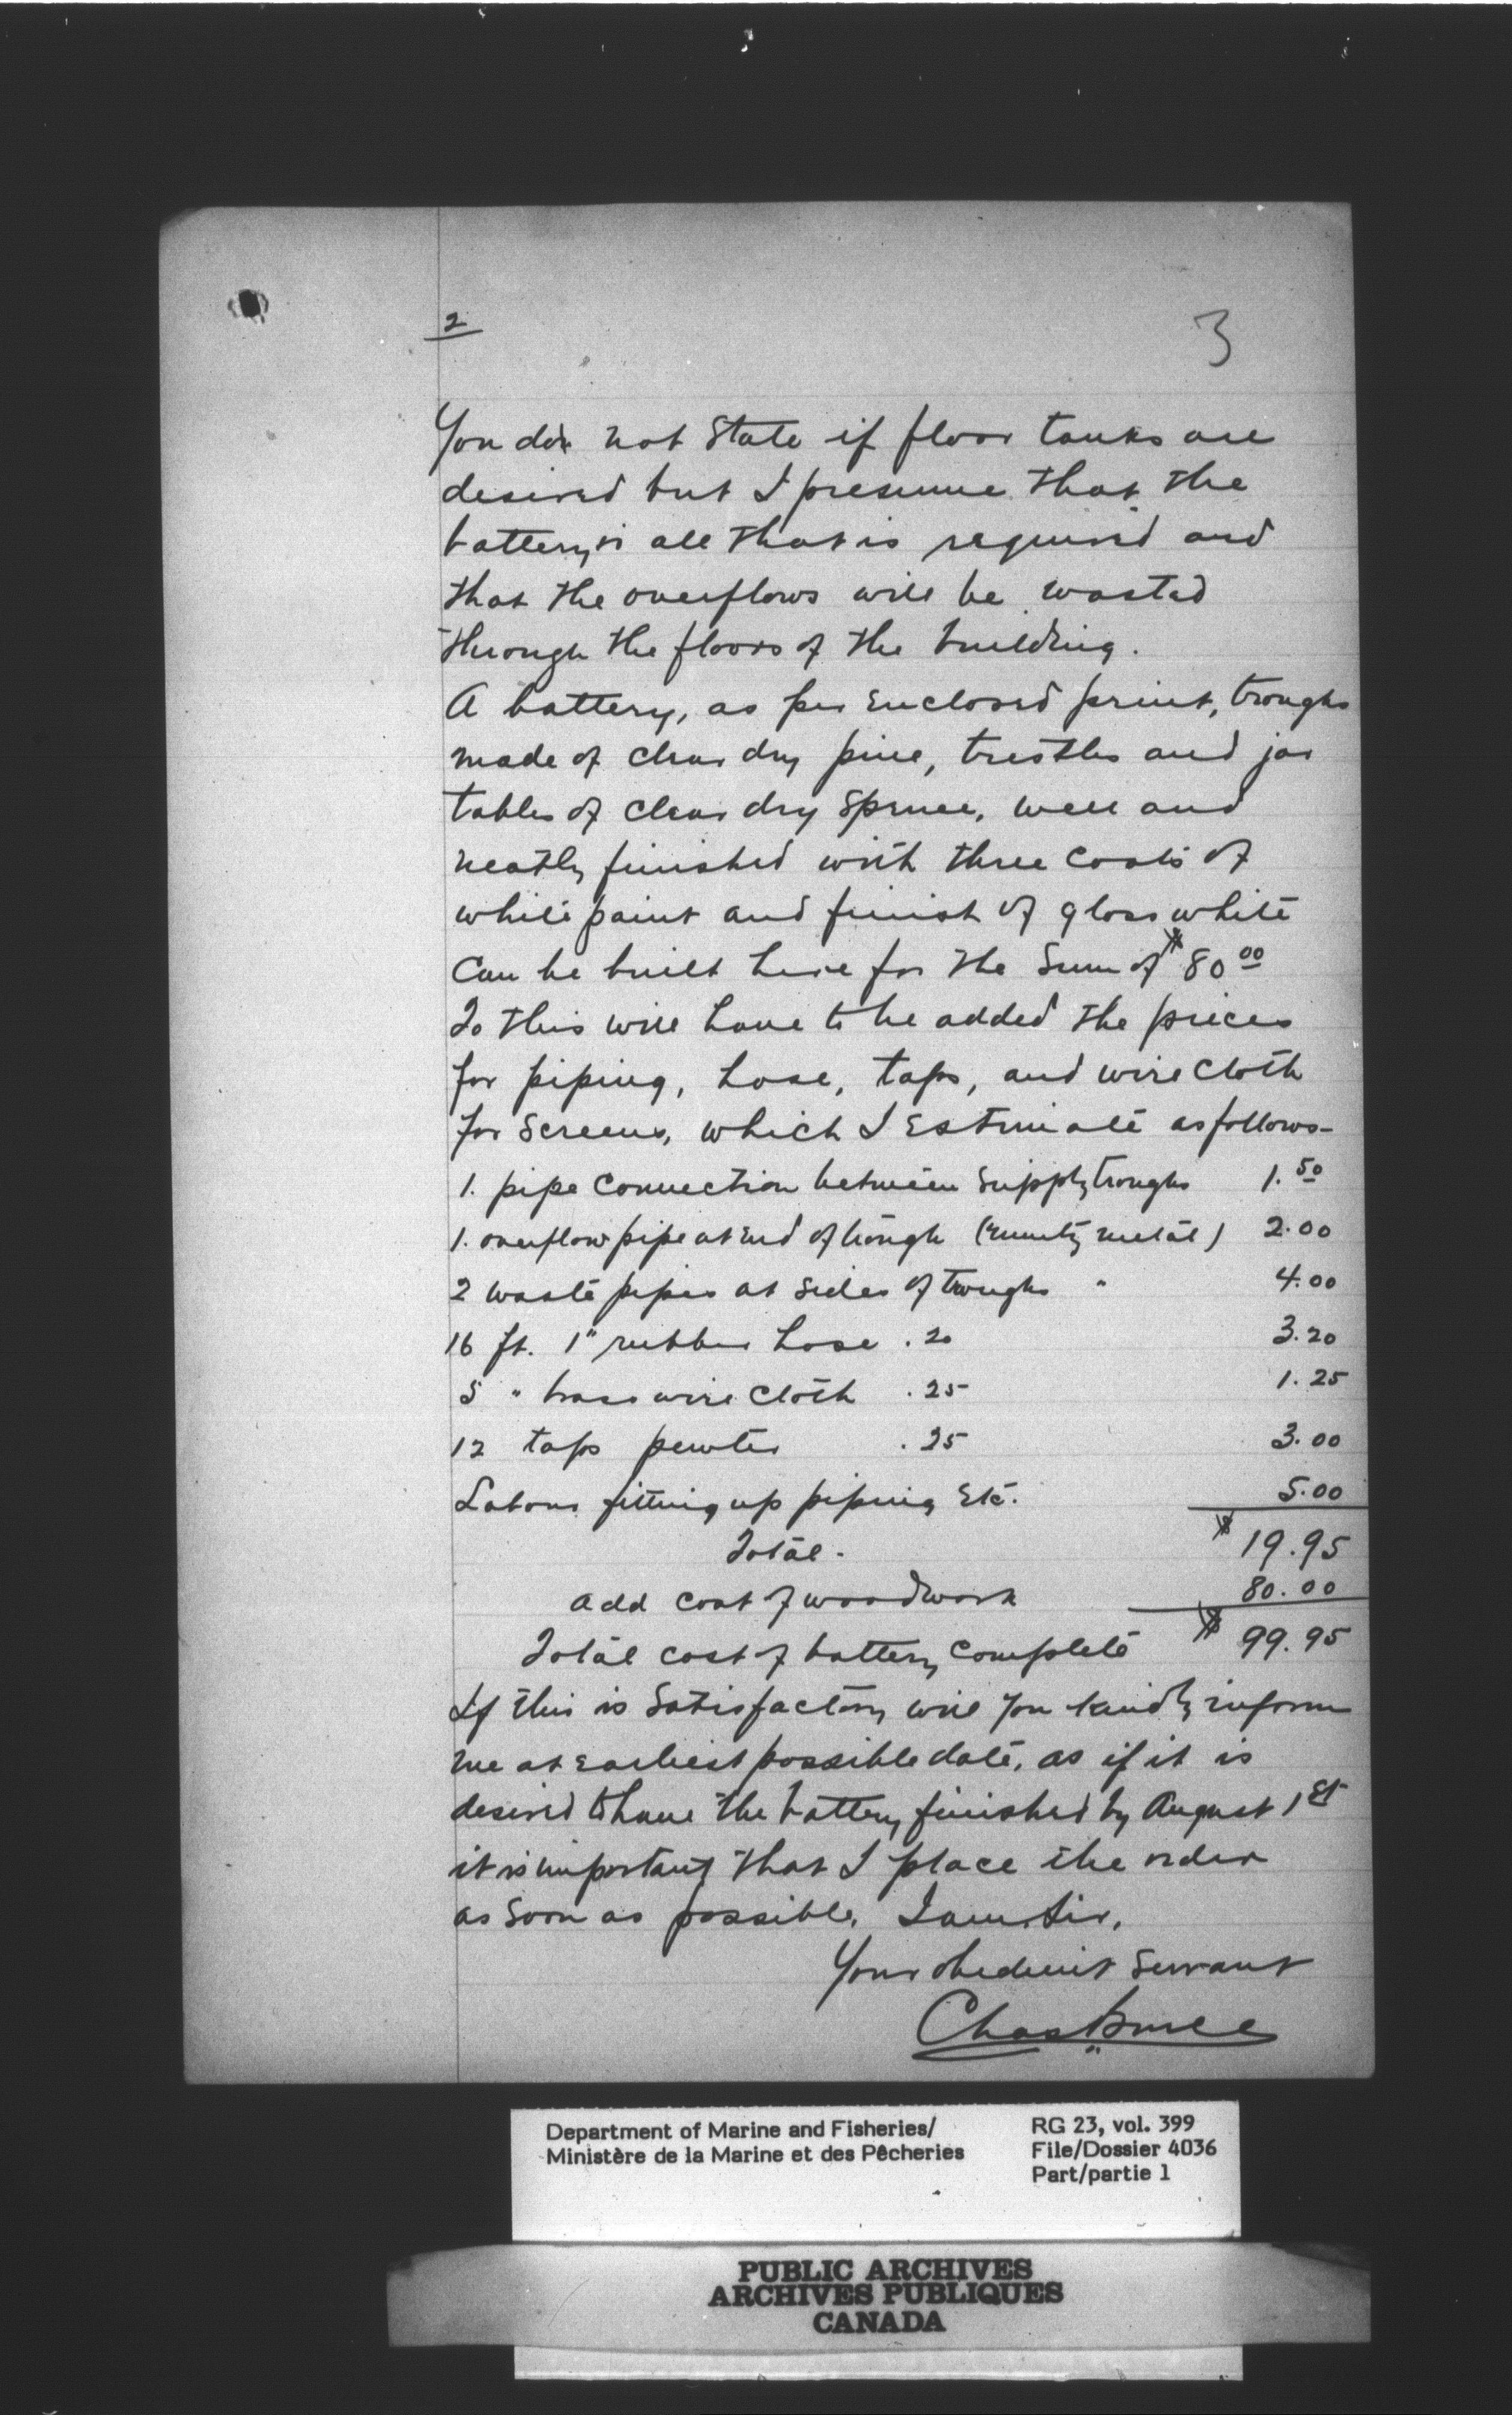 2
3
You do not state if floor tanks are
desired but I presume that the
battery is all that is required and
that the overflows will be wasted
through the floors of the building.
A battery, as per enclosed print, troughs
made of clear dry pine, trestles and jar
tables of clear dry spruce, well and
neatly finished with three coats of
white paint and finish of gloss white
can be built here for the sum of $80.00
To this will have to be added the prices
for piping, hose, taps, and wire cloth
for screens, which I estimate as follows-
1. pipe connection between supply troughs 1.50
1. overflow pipe at end of trough ( metal) 2.00
2 waste pipes at sides of troughs " 4.00
16 ft. 1" rubber hose .20 3.20
5 " brass wire cloth .25 1.25
12 taps pewter .25 3.00
Labour fitting up piping Etc. 5.00
Total - $19.95
add cost of woodwork 80.00
Total cost of battery complete $99.95
If this is satisfactory will you kindly inform
me at earliest possible date, as if it is
desired to have the battery finished by August 1st
it is important that I place the order
as soon as possible. I am, Sir,
Your obedient servant
Chas Bruce
Department of Marine and Fisheries/
Ministère de la Marine et des Pêcheries
RG 23, vol. 399
File/Dossier 4036
Part/partie 1
PUBLIC ARCHIVES
ARCHIVES PUBLIQUES
CANADA